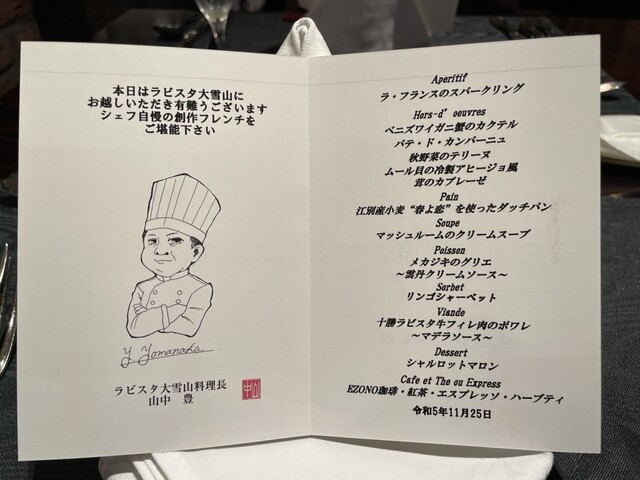 本日はラビスタ大雪山に
お越しいただき有難うございます
シェフ自慢の創作フレンチを
ご堪能下さい
Y Yomanaka
ラビスタ大雪山料理長
山中 豊
山中
Aperitif
ラ・フランスのスパークリング
Hors-d'oeuvres
ベニズワイガニ蟹のカクテル
パテ・ド・カンパーニュ
秋野菜のテリーヌ
ムール貝の冷製アヒージョ風
茸のカプレーゼ
Pain
江別産小麦“春よ恋”を使ったダッチパン
Soupe
マッシュルームのクリームスープ
Poisson
メカジキのグリエ
～雲丹クリームソース～
Sorbet
リンゴシャーベット
Viande
十勝ラビスタ牛フィレ肉のポワレ
～マデラソース～
Dessert
シャルロットマロン
Cafe et The ou Express
EZONO珈琲・紅茶・エスプレッソ・ハーブティ
令和5年11月25日